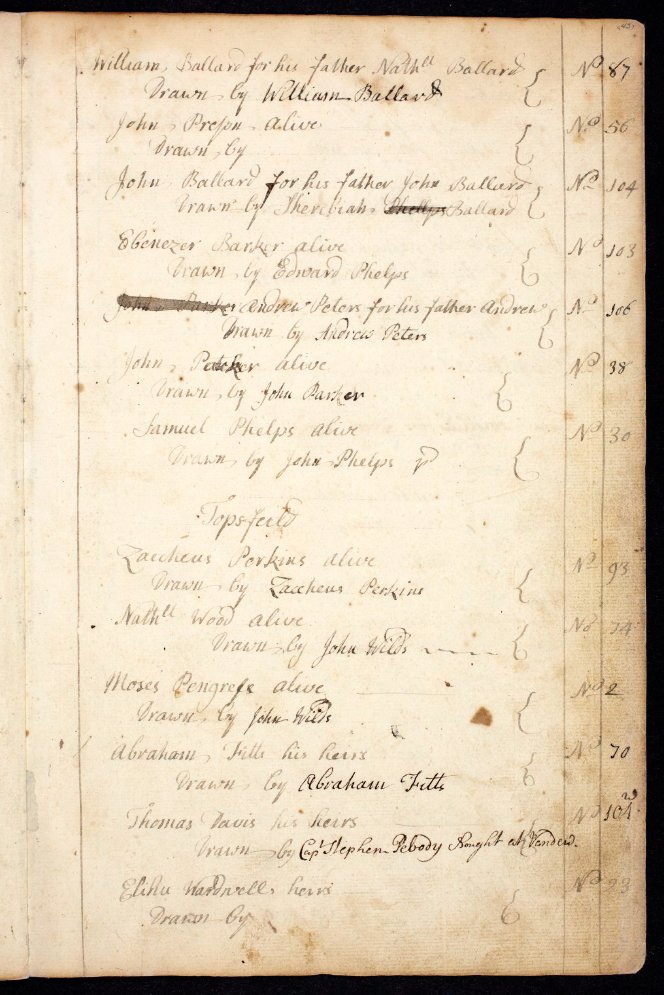 William Ballard for his father Nathll Ballard No 87
Drawn by William Ballard
John Preson alive No 56
Drawn by
John Ballard for his father John Ballard No 104
Drawn by Sherebiah Phellps Ballard
Ebenezer Barker alive No 103
Drawn by Edward Phelps
John Parker Andrew Peters for his father Andrew No 106
Drawn by Andrew Peters
John Parker alive No 38
Drawn by John Parker
Samuel Phelps alive No 30
Drawn by John Phelps
Topsfeild
Zaccheus Perkins alive No 93
Drawn by Zaccheus Perkins
Nathll Wood alive No 74
Drawn by John Wilds
Moses Pengress alive No 2
Drawn by John Wilds
Abraham Fitts his heirs No 70
Drawn by Abraham Fitts
Thomas Davis his heirs No 104
Drawn by Capt Stephen Pebody Bought at Vendew.
Elihu Wardwell heirs No 23
Drawn by